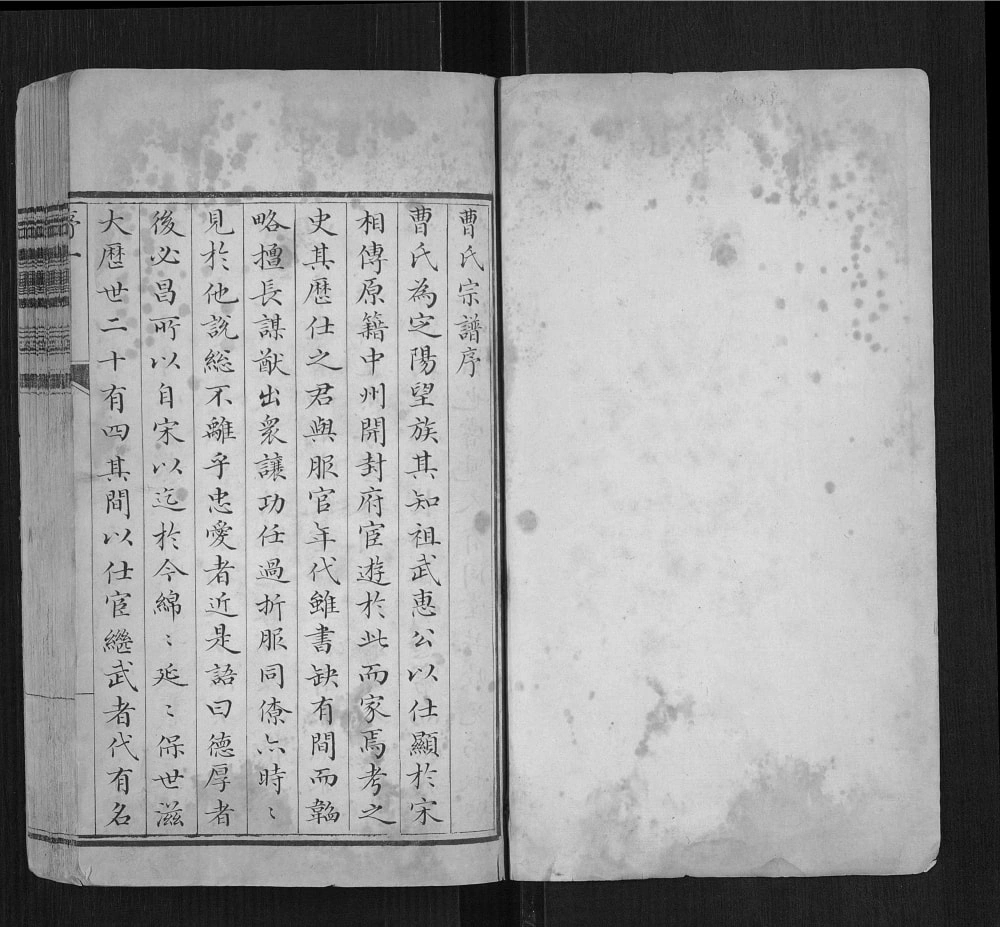 曹氏宗譜序
曹氏為定陽望族其知祖武惠公以仕顯於宋
相傳原籍中州開封府宦遊於此而家焉考之
史其歷仕之君與服官年代雖書缺有間而韜
略擅長謀猷出衆讓功任過折服同僚六時〻
見於他說総不離乎忠愛者近是語曰德厚者
後必昌所以自宋以迄於今綿〻延〻保世滋
大歷世二十有四其間以仕宦繼武者代有名
序一